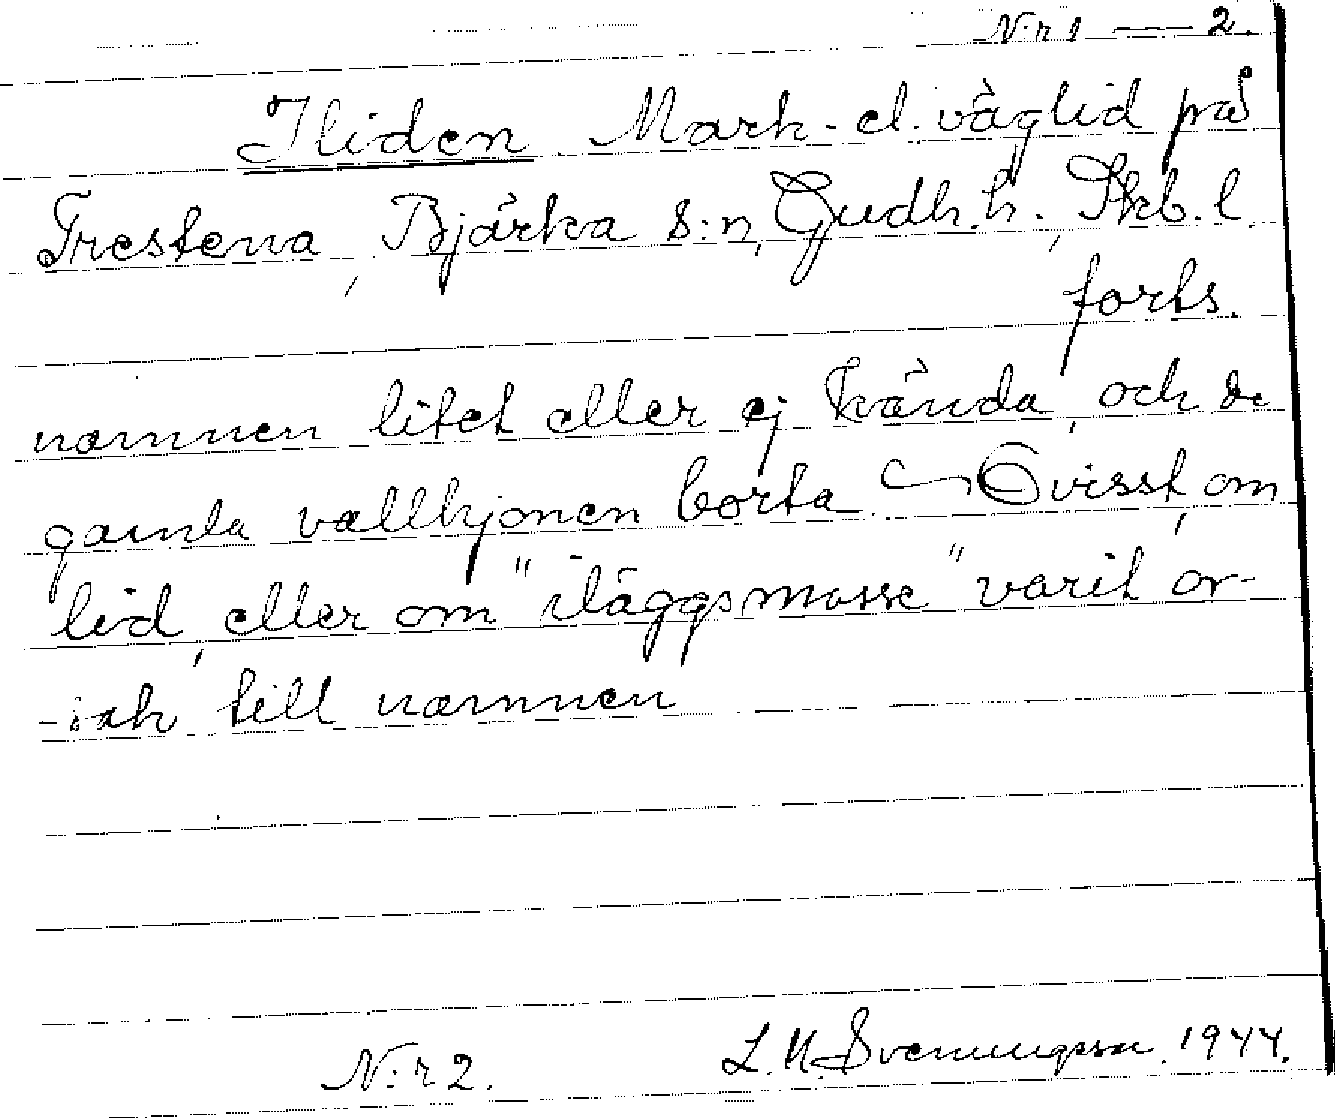 N:r 1 — 2.
Iliden Mark- el. väglid på
Trestena, Bjärka s:n, Gudh. h., Skb. l.
forts.
namnen litet eller ej kända, och de
gamla vallhjonen borta. ~ Ovisst, om
lid, eller om "iläggsmosse" varit or-
-sak till namnen
N:r 2. L. M. Svenungsson. 1944.